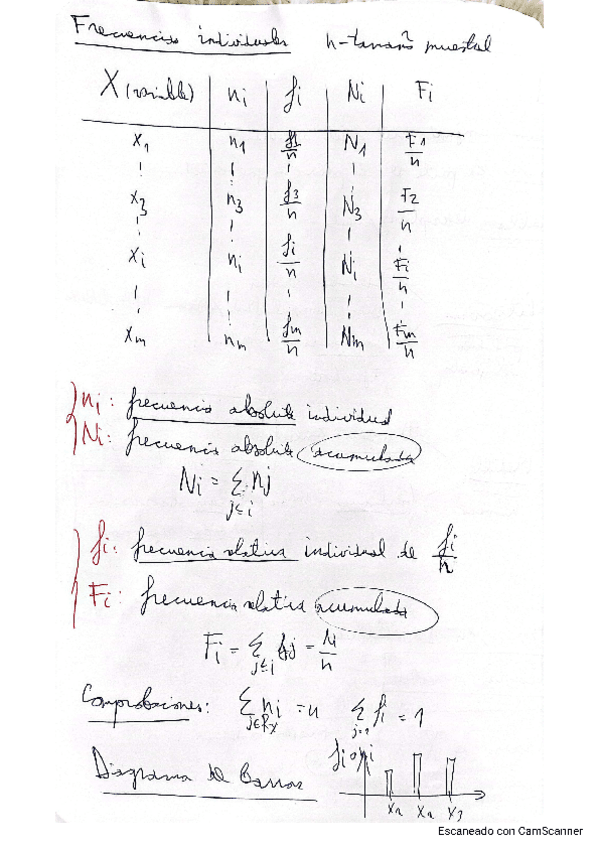 Frecuencias individuales n-tamaño muestral
X (variable) ni fi Ni Fi
x1 n1 f1/n N1 F1/n
x3 n3 f3/n N3 F2/n
xi ni fi/n Ni Fi/n
xm nm fm/n Nm Fm/n
ni: frecuencia absoluta individual
Ni: frecuencia absoluta acumulada
Ni = Σ nj
j≤i
fi: frecuencia relativa individual de fi/n
Fi: frecuencia relativa acumulada
Fi = Σ fj = N/n
j≤i
Comprobaciones: Σ ni = n Σ fi = 1
j=1
Diagrama de Barras fi o ni
x1 x2 x3
Escaneado con CamScanner